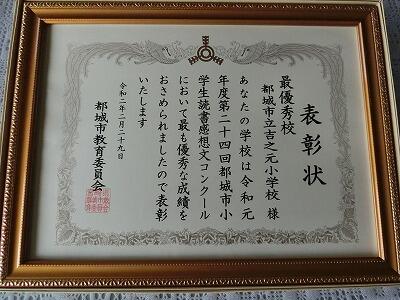 表彰状
最優秀校
都城市立吉之元小学校 様
あなたの学校は令和元
年度第二十四回都城市小
学生読書感想文コンクール
において最も優秀な成績を
おさめられましたので表彰
いたします
令和二年二月二十九日
都城市教育委員会